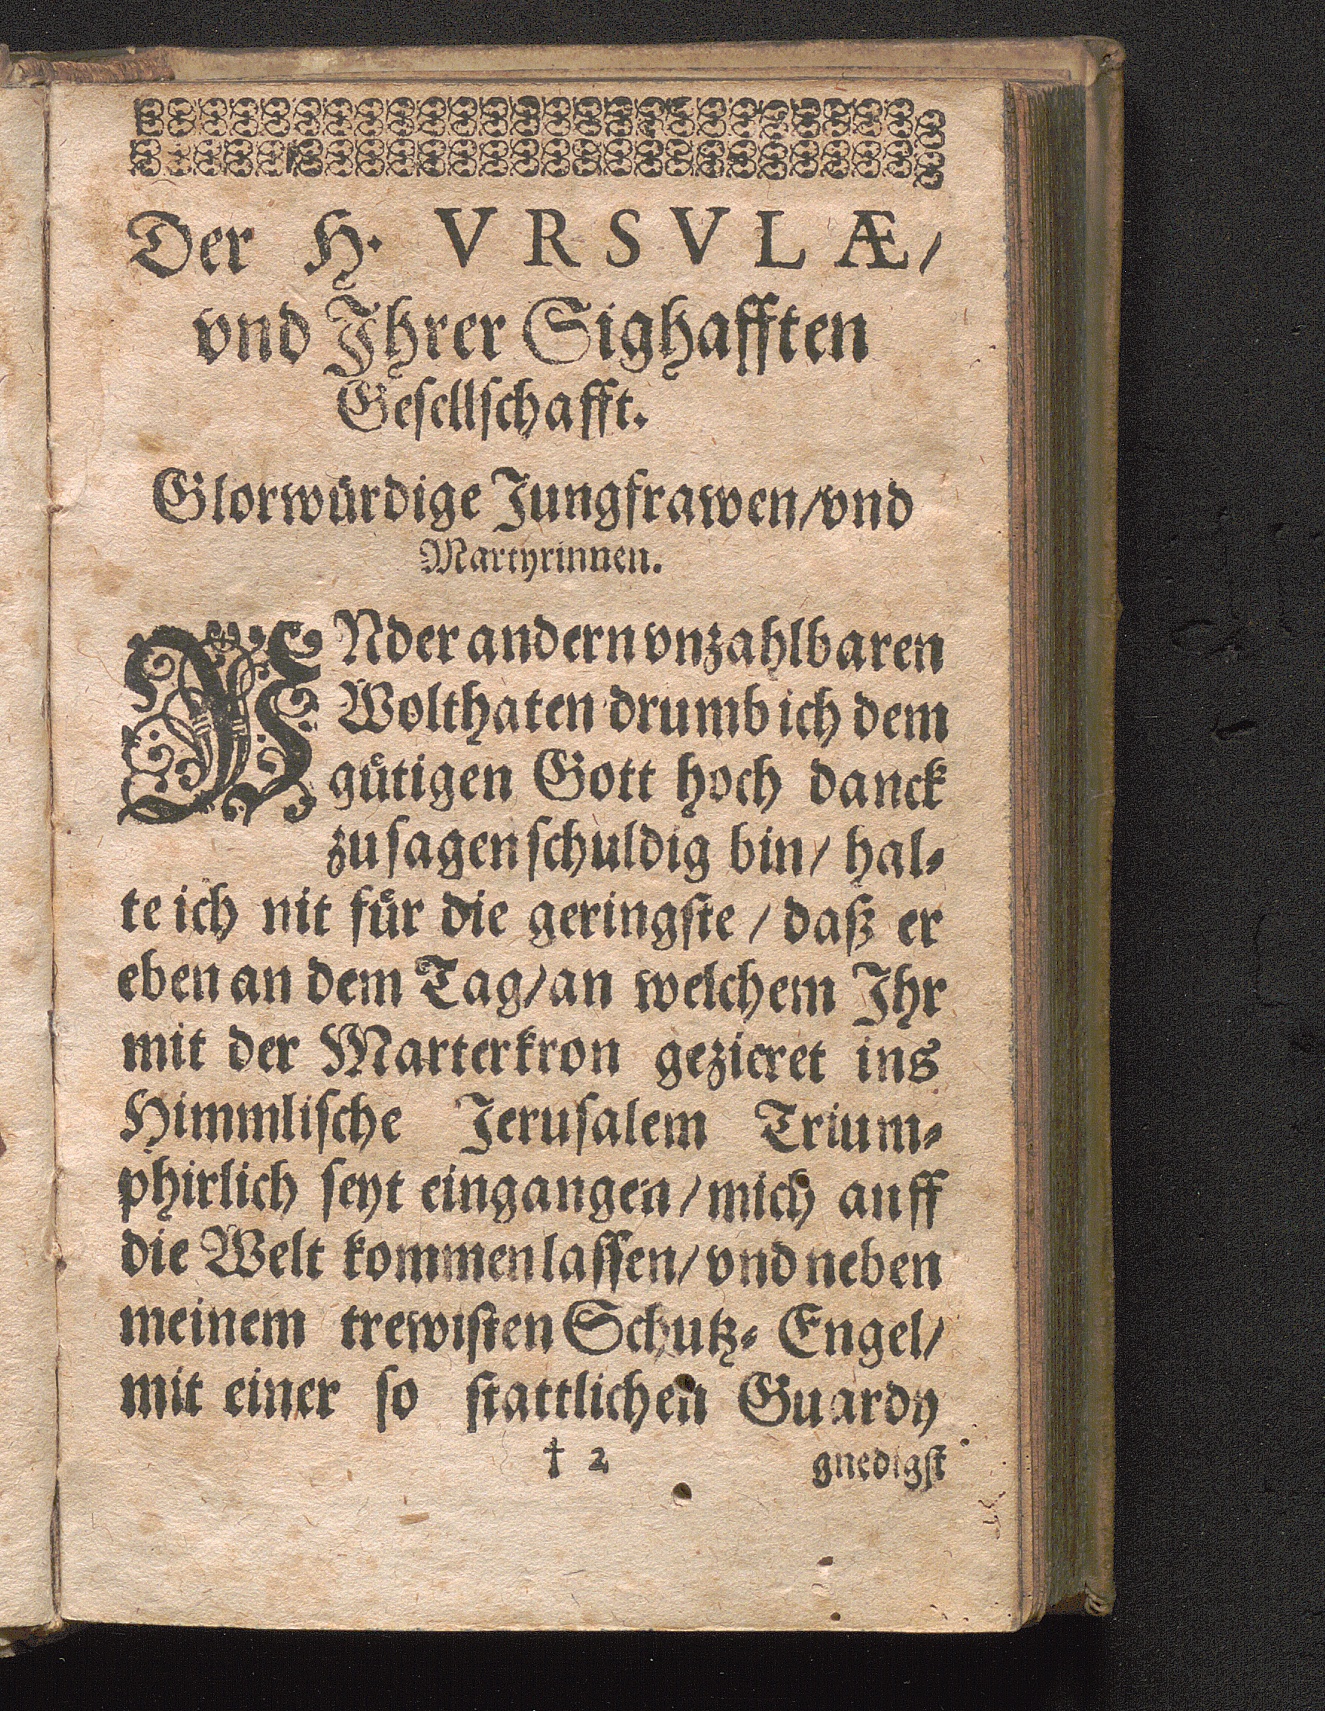 Der H. VRSVLÆ/
vnd Ihrer Sighafften
Gesellschafft.
Glorwürdige Jungfrawen/vnd
Martyrinnen.
VNder andern vnzahlbaren
Wolthaten drumb ich dem
gütigen Gott hoch danck
zu sagen schuldig bin/ hal-
te ich nit für die geringste/ daß er
eben an dem Tag/an welchem Ihr
mit der Marterkron gezieret ins
Himmlische Jerusalem Trium-
phirlich seyt eingangen/mich auff
die Welt kommen lassen/vnd neben
meinem trewisten Schutz-Engel/
mit einer so stattlichen Guardy
† 2 gnedigst